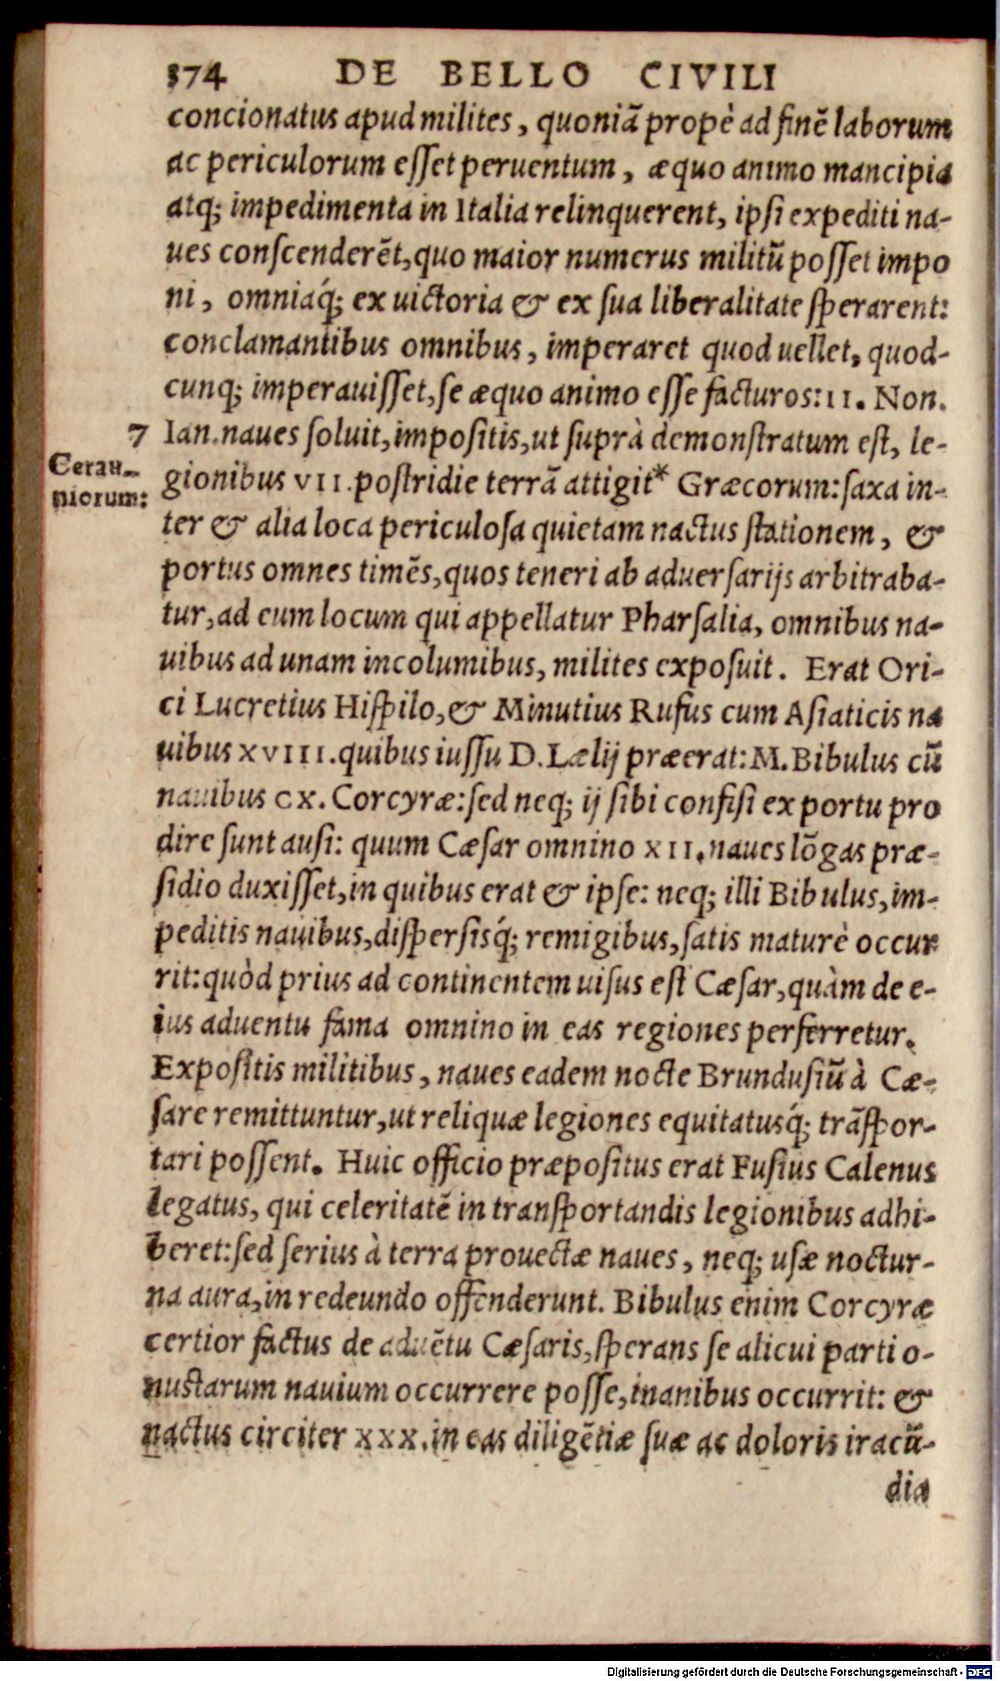 374 DE BELLO CIVILI
concionatus apud milites, quoniã propè ad finẽ laborum
ac periculorum eſſet peruentum, æquo animo mancipia
atq; impedimenta in Italia relinquerent, ipſi expediti na-
ues conſcenderẽt, quo maior numerus militũ poſſet impo
ni, omniaq́; ex uictoria & ex ſua liberalitate ſperarent:
conclamantibus omnibus, imperaret quod uellet, quod-
cunq; imperauiſſet, ſe æquo animo eſſe facturos: II. Non.
7 Ian. naues ſoluit, impoſitis, ut ſuprà demonſtratum eſt, le-
Cerau-
niorum:
gionibus VII. poſtridie terrã attigit* Græcorum: ſaxa in-
ter & alia loca periculoſa quietam nactus ſtationem, &
portus omnes timẽs, quos teneri ab aduerſarijs arbitraba-
tur, ad eum locum qui appellatur Pharſalia, omnibus na-
uibus ad unam incolumibus, milites expoſuit. Erat Ori-
ci Lucretius Hiſpilo, & Minutius Rufus cum Aſiaticis na
uibus XVIII. quibus iuſſu D. Lælij præerat: M. Bibulus cũ
nauibus CX. Corcyræ: ſed neq; ij ſibi confiſi ex portu pro
dire ſunt auſi: quum Cæſar omnino XII. naues lõgas præ-
ſidio duxiſſet, in quibus erat & ipſe: neq; illi Bibulus, im-
peditis nauibus, diſperſisq́; remigibus, ſatis maturè occur
rit: quòd prius ad continentem uiſus eſt Cæſar, quàm de e-
ius aduentu fama omnino in eas regiones perferretur.
Expoſitis militibus, naues eadem nocte Brunduſiũ à Cæ-
ſare remittuntur, ut reliquæ legiones equitatusq́; trãſpor-
tari poſſent. Huic officio præpoſitus erat Fuſius Calenus
legatus, qui celeritatẽ in tranſportandis legionibus adhi-
beret: ſed ſerius à terra prouectæ naues, neq; uſæ noctur-
na aura, in redeundo offenderunt. Bibulus enim Corcyræ
certior factus de aduẽtu Cæſaris, ſperans ſe alicui parti o-
nuſtarum nauium occurrere poſſe, inanibus occurrit: &
nactus circiter XXX. in eas diligẽtiæ ſuæ ac doloris iracũ-
dia
Digitalisierung gefördert durch die Deutsche Forschungsgemeinschaft - DFG